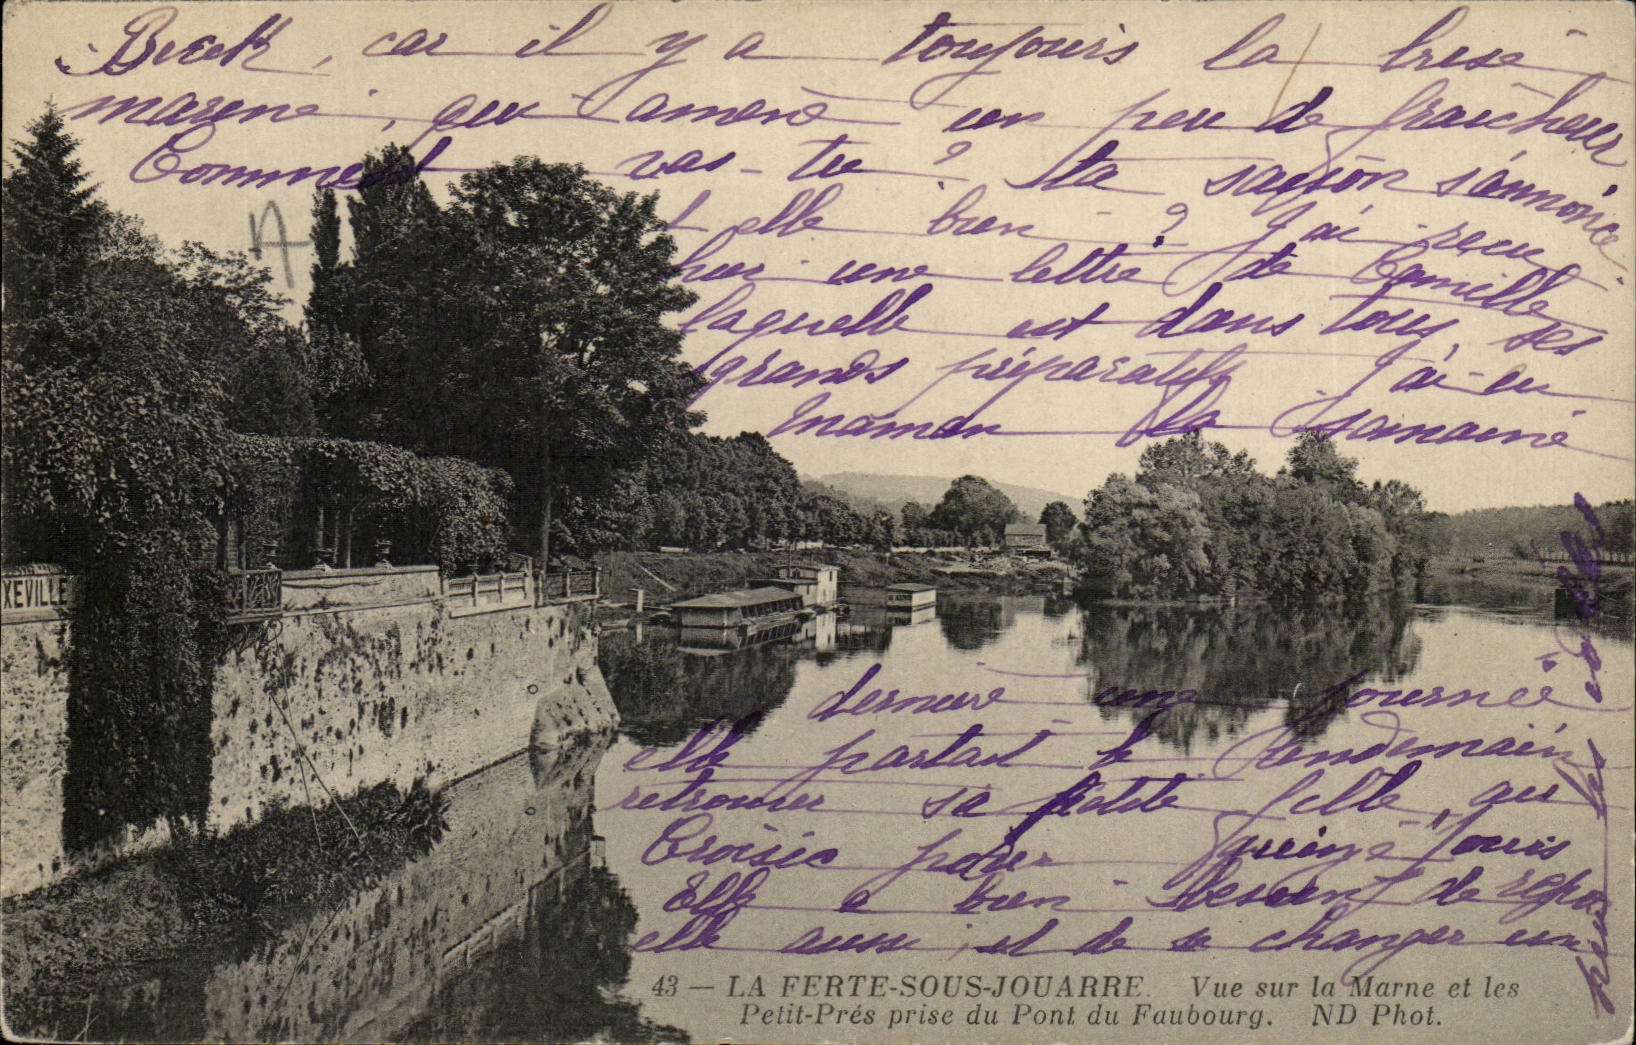 Breck, car il y a toujours la brise
marine, qui amène un peu de fraîcheur
Comment vas-tu ? ta saison s'annonce
t elle bien ? J'ai reçu
hier une lettre de Camille
laquelle est dans tous ses
grands préparatifs. J'ai eu
maman la semaine
dernière une journée
elle partait le lendemain
retrouver sa petite fille, au
Croisic pour quinze jours
Elle a bien besoin de repos
elle aussi, et de se changer un
peu les idées
XEVILLE
43 — LA FERTE-SOUS-JOUARRE. Vue sur la Marne et les
Petit-Prés prise du Pont du Faubourg. ND Phot.